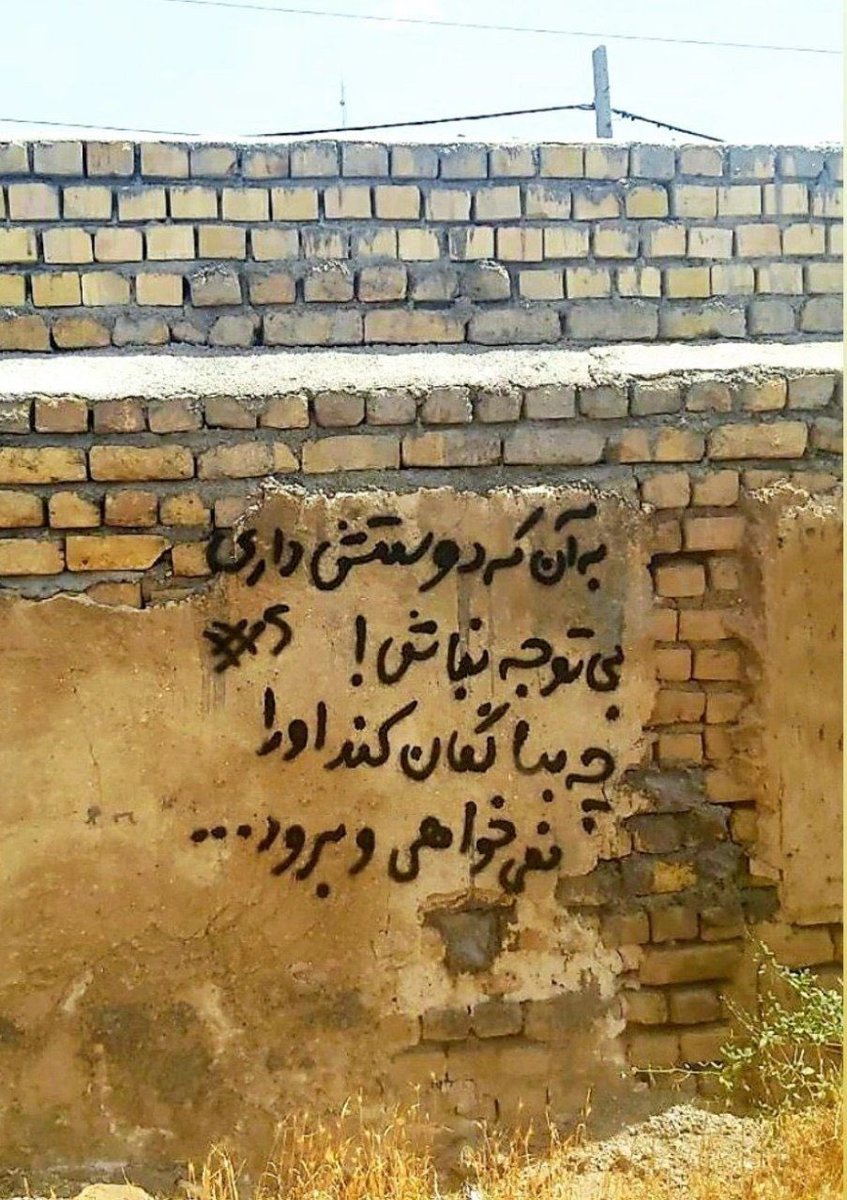 به آن که دوستش داری
بی توجه نباش!
چه بسا گمان کند او را
نمی خواهی و برود...